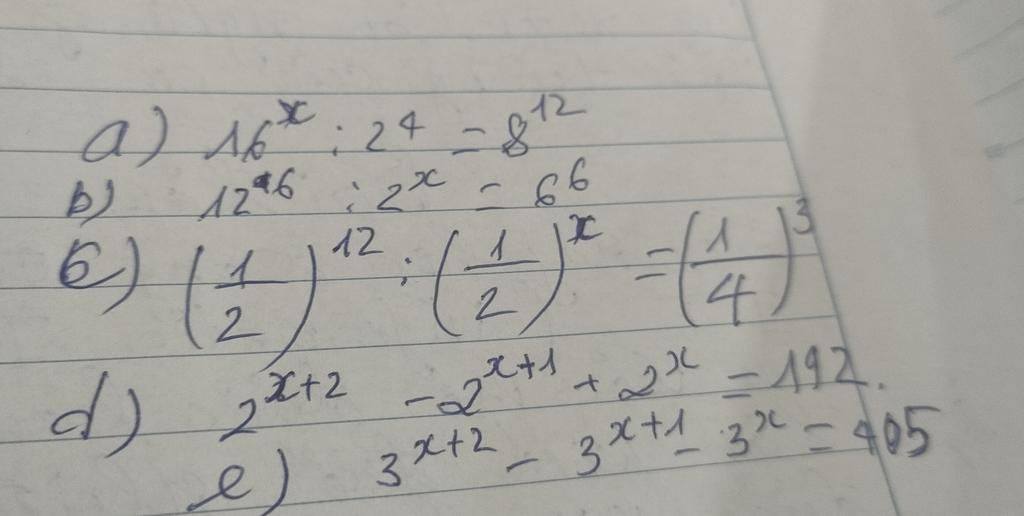 a) 16^x : 2^4 = 8^12
b) 12^6 : 2^x = 6^6
c) (1/2)^12 : (1/2)^x = (1/4)^3
d) 2^(x+2) - 2^(x+1) + 2^x = 192.
e) 3^(x+2) - 3^(x+1) - 3^x = 405